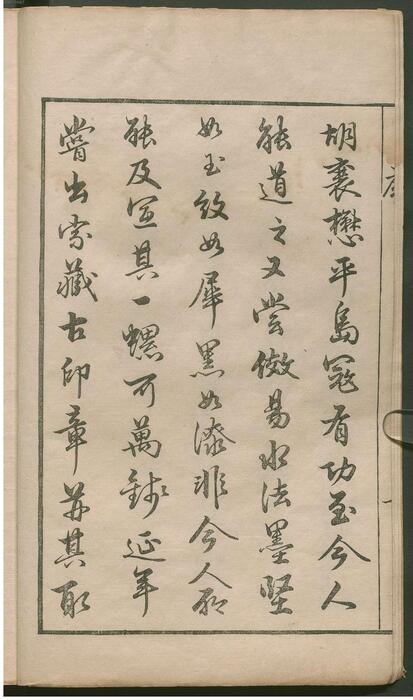 胡襄懋平島寇有功至今人
能道之又嘗倣易水法墨堅
如玉紋如犀黑如漆非今人所
能及宜其一螺可萬錢延年
嘗出家藏古印章并其所
序